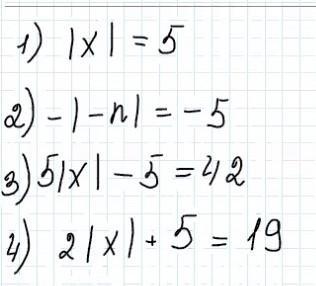 1) |x| = 5
2) - |-n| = -5
3) 5|x| - 5 = 42
4) 2|x| + 5 = 19